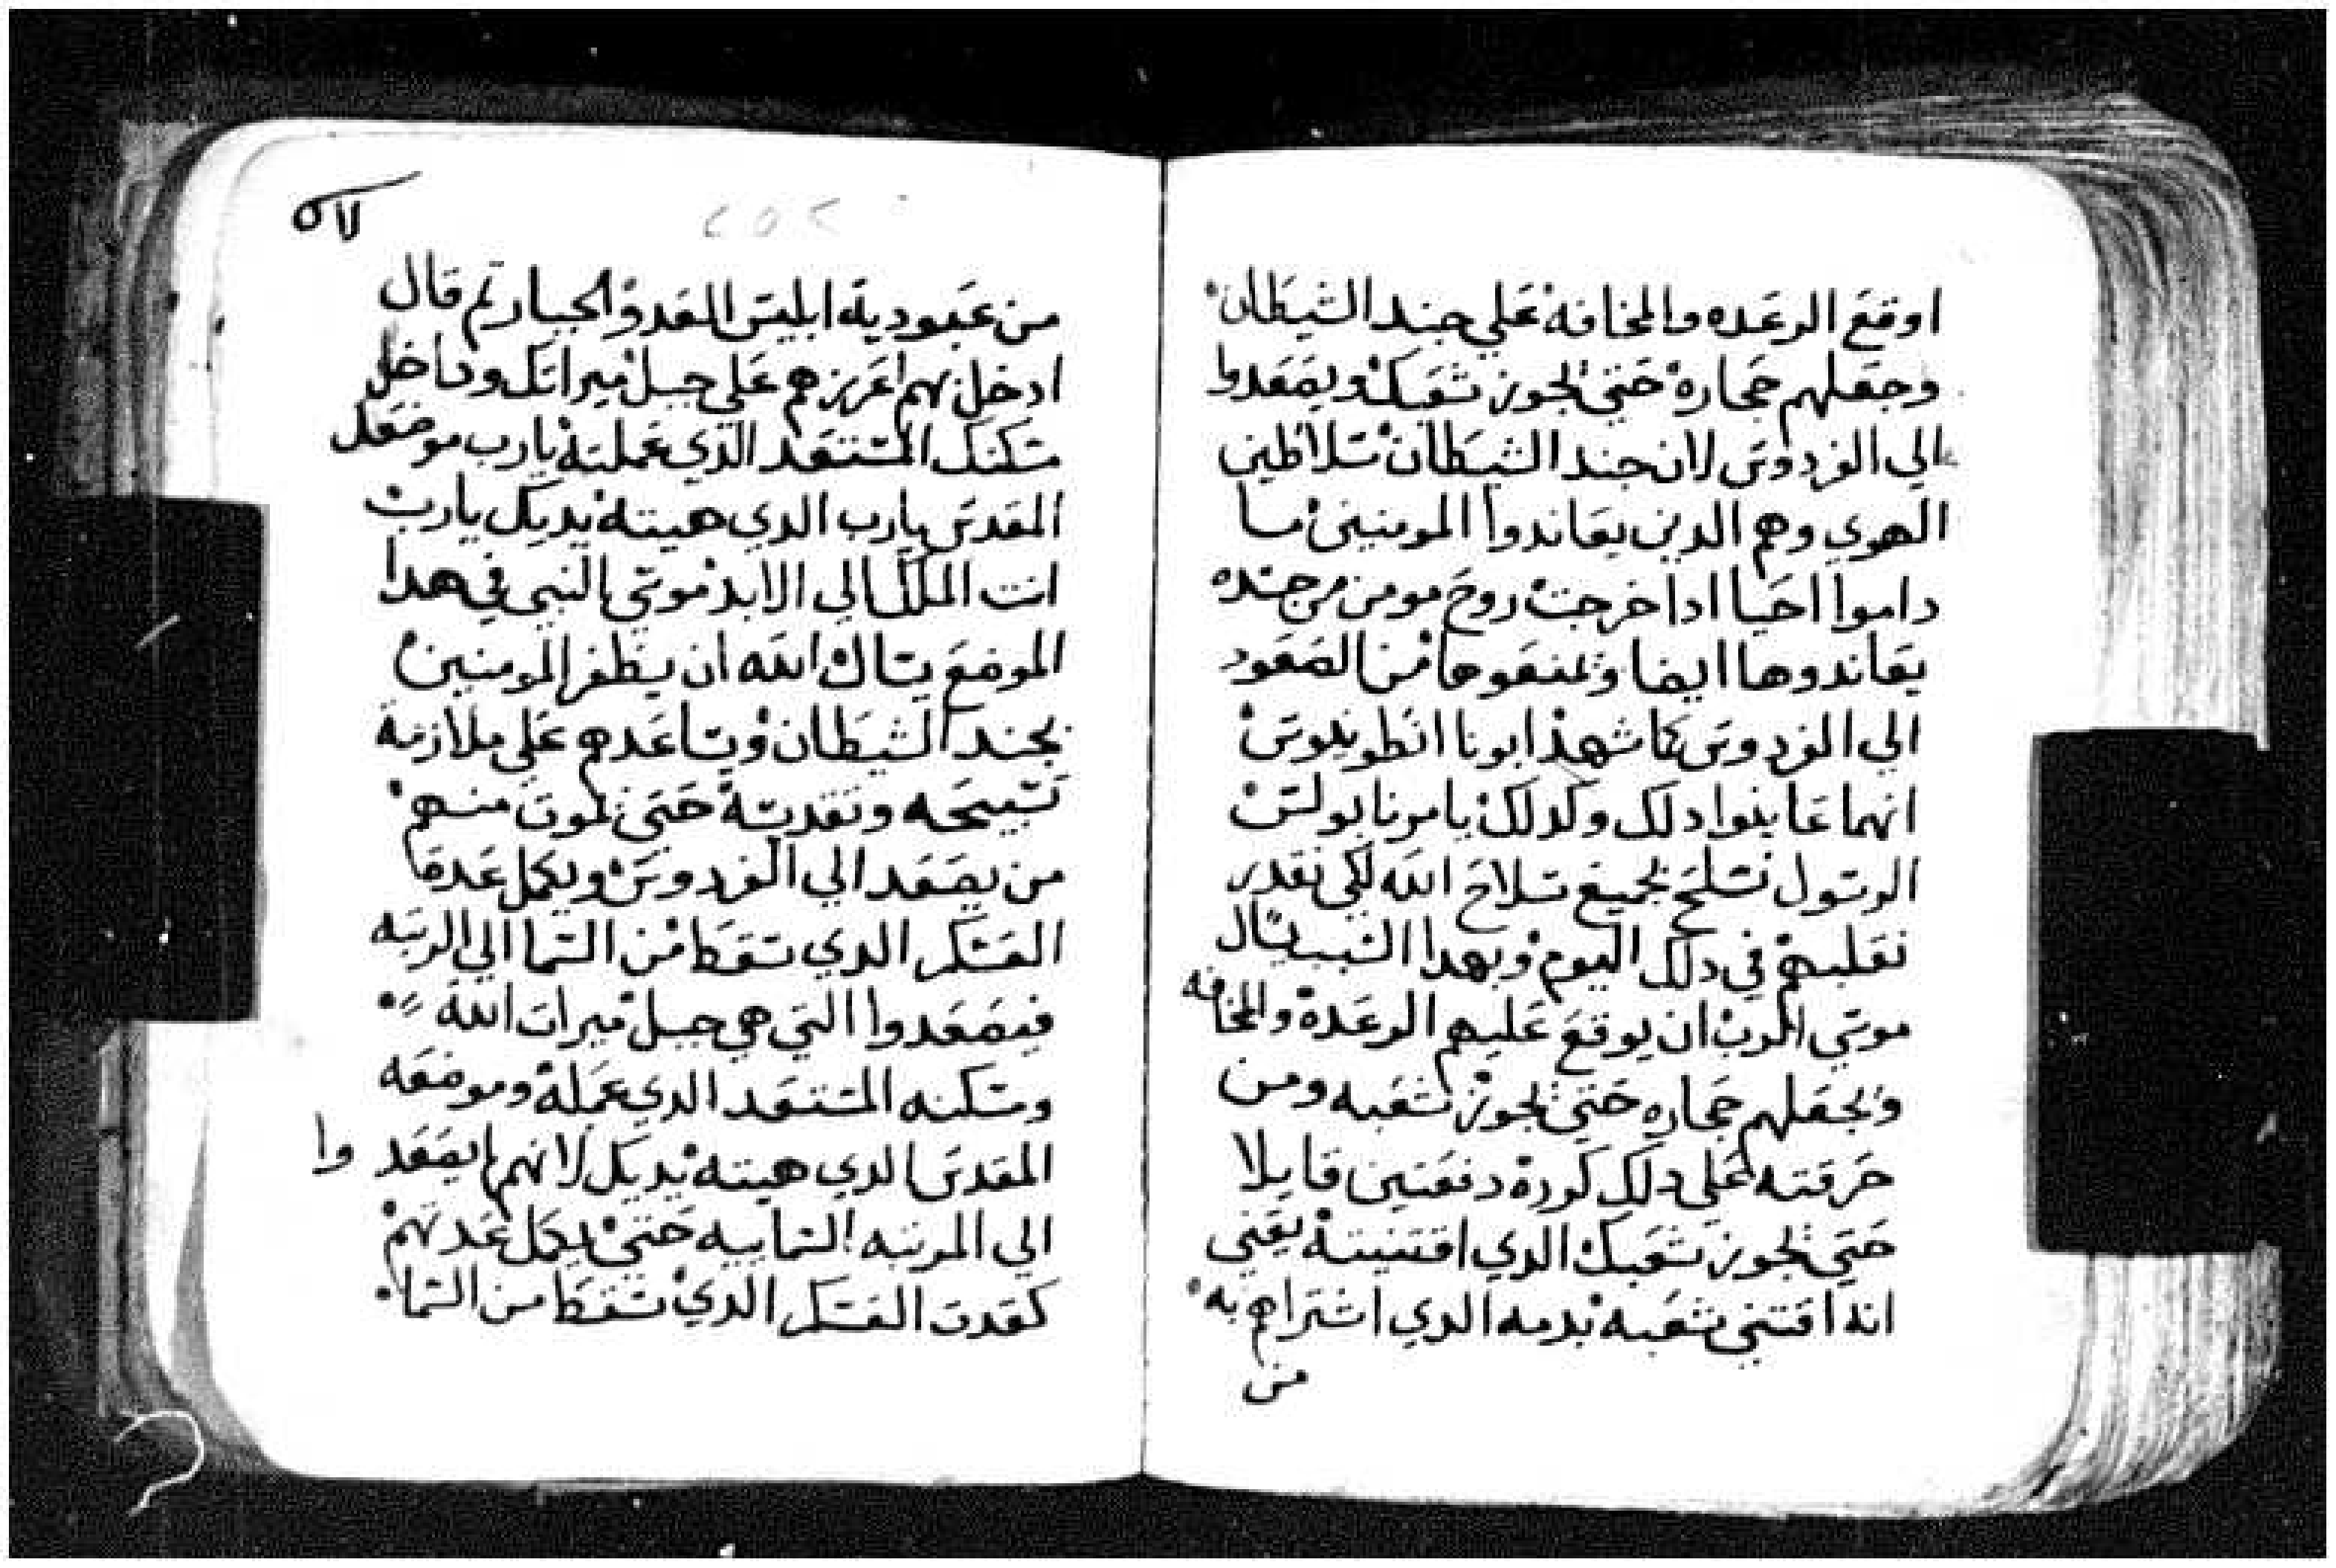 اوقع الرعده والمخافه علي جند الشيطان
وجعلهم حجاره حتي تجوز شعبك ويصعدوا
الي الفردوس لان جند الشيطان سلاطين
الهوي وهم الدين يعاندوا المومنين ما
داموا احيا ادا خرجت روح مومن من جسده
يعاندوها ايضا وتمنعوها من الصعود
الي الفردوس كما شهد ابونا انطونيوس
انهما عاينوا دلك وكدلك يامرنا بولس
الرسول نتسلح بجميع سلاح الله لكي نقدر
نغلبهم في دلك اليوم وبهدا السبب يسال
موسي الرب ان يوقع عليهم الرعدة والمخافه
وتجعلهم حجاره حتي تجوز شعبه ومن
حرقته علي دلك كررة دفعتين قايلا
حتي تجوز شعبك الدي اقتنيتة يعني
انه اقتني شعبه بدمه الدي اشتراهم به
من
لاه
٢٥٢
من عبودية ابليس العدو الجبار تم قال
ادخل بهم اغرزهم علي جبل ميراتك وداخل
مسكنك المستعد الدي عملتة يارب موضعك
المقدس يارب الدي هيته يديك يارب
انت الملك الي الابد موسي النبي في هدا
الموضع يسال الله ان يظفر المومنين
بجند الشيطان وتساعدهم علي ملازمة
تسبيحه وتقديسة حتي تموت منهم
من يصعد الي الفردوس ويكمل عدة
العسكر الدي سقط من السما الي الرتبه
فيصعدوا التي هي جبل ميرات الله
ومسكنه المستعد الدي عمله وموضعه
المقدس الدي هيته يديك لانهم يصعدوا
الي المرتبه السماييه حتي يكمل عدتهم
كعدت العسكر الدي سقط من السما